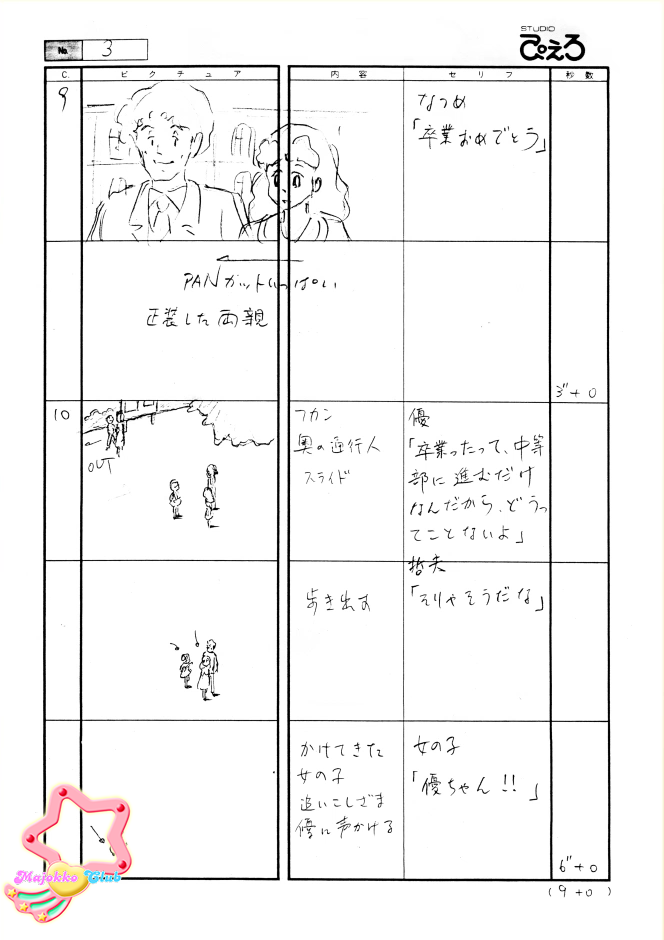 No. 3
STUDIO
ぴえろ
C. ピクチュア 内容 セリフ 秒数
9
なつめ
「卒業おめでとう」
PANカットいっぱい
正装した両親
3"+0
10
OUT
フカン
奥の通行人
スライド
優
「卒業ったって、中等
部に進むだけ
なんだから、どうっ
てことないよ」
歩き出す
哲夫
「そりゃそうだな」
かけてきた
女の子
追いこしざま
優に声かける
女の子
「優ちゃん!!」
6"+0
(9+0)
Majokko Club